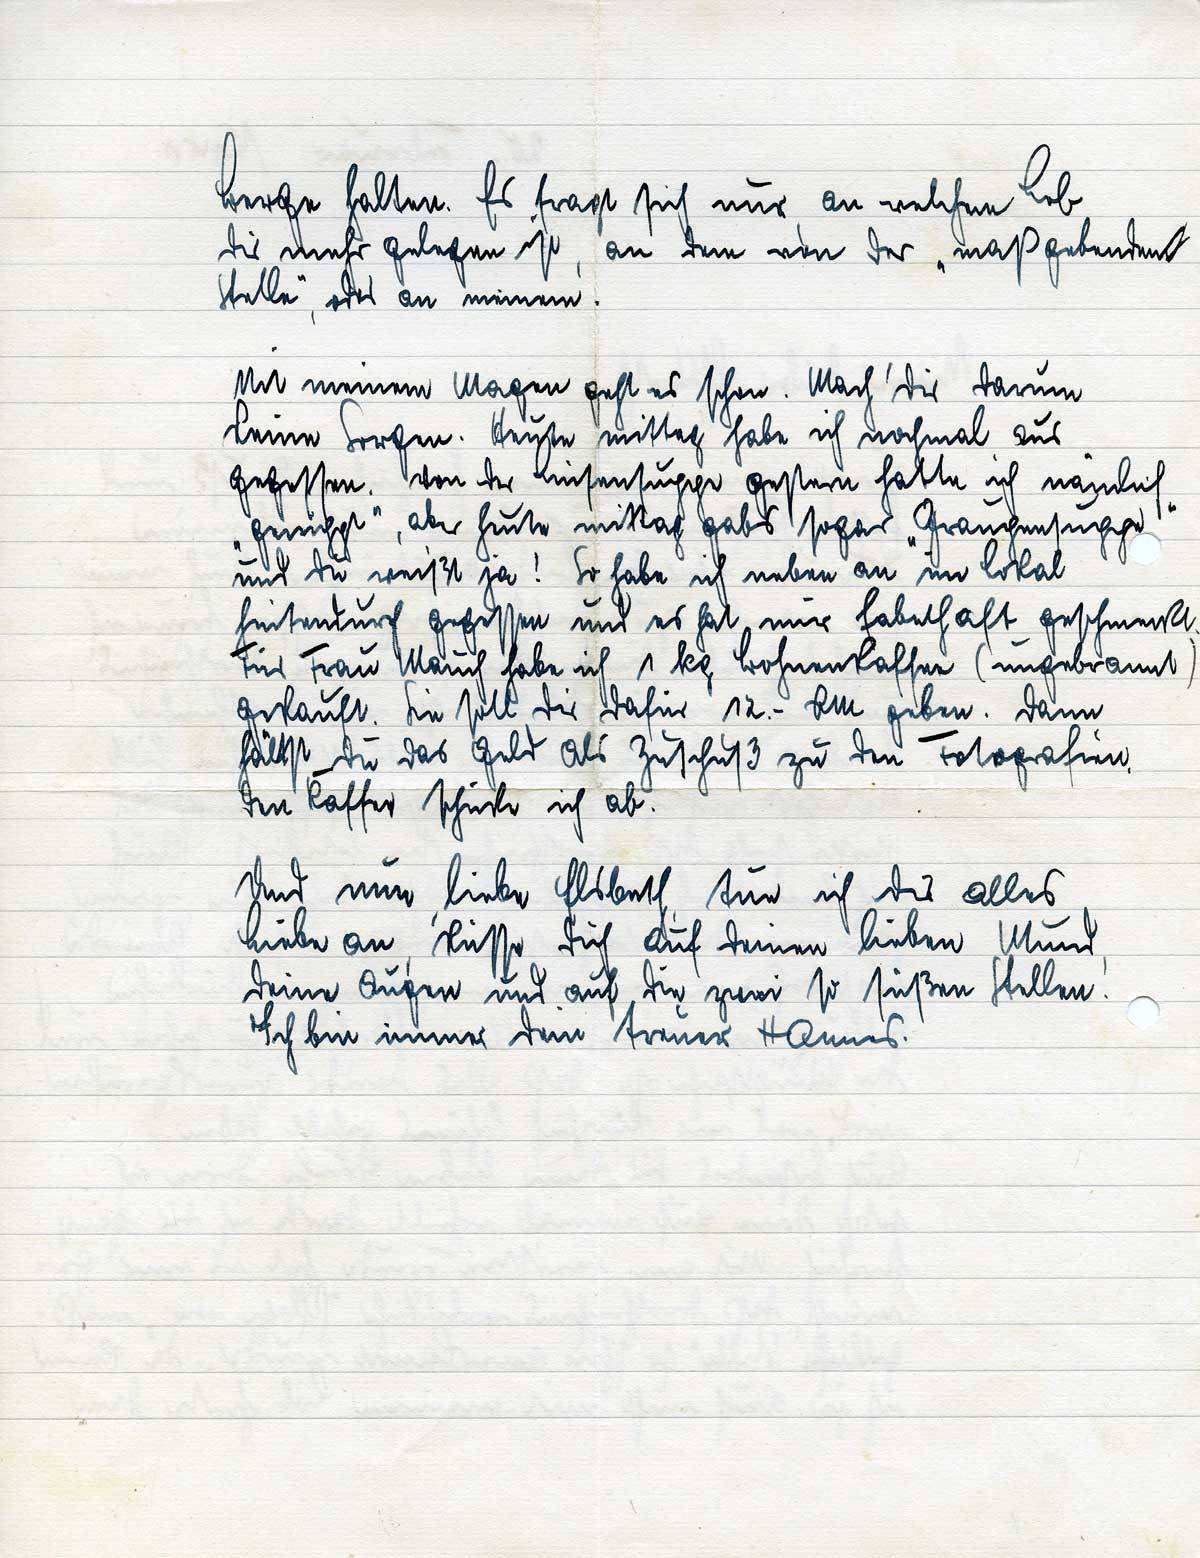 Berge halten. Es fragt sich nur an welchem Lob
dir mehr gelegen ist, an dem von der „maßgebenden
Stelle", oder an meinem.
Mit meinem Magen geht es schon. Mach' dir darum
keine Sorgen. Heute mittag habe ich nochmal aus
gegessen. Von der Linsensuppe gestern hatte ich nämlich
„genippt", aber heute mittag gabs sogar „Graupensuppe"
und du weißt ja! So habe ich neben an im Lokal
gegessen und es hat mir fabelhaft geschmeckt.
Für Frau Mauch habe ich 1 kg Bohnenkaffee (ungebrannt)
gekauft. Sie soll dir dafür 12.- RM geben. Dann
hättst du das Geld als Zuschuß zu den Fotografien.
Den Kaffee schicke ich ab.
Und nun, liebe Elsbeth, tue ich dir alles
Liebe an, küsse dich auf deinen lieben Mund,
deine Augen und auf die zwei so süßen Stellen!
Ich bin immer dein treuer Hannes.